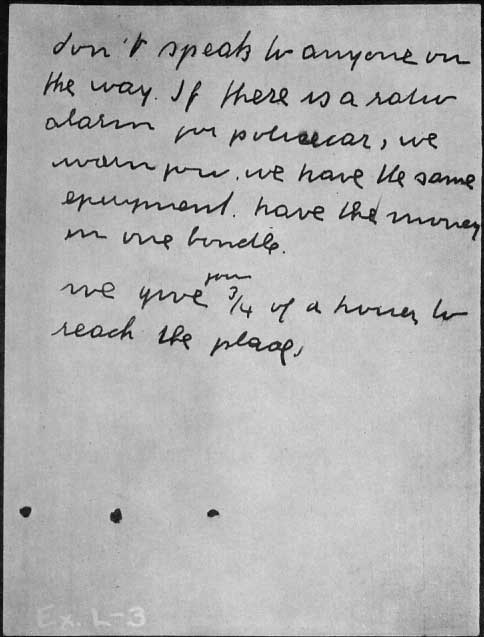 don't speak to anyone on
the way. If there is a radio
alarm for policecar, we
warn you. we have the same
equipment. have the money
in one bundle.
we give you 3/4 of a houer to
reach the place,
Ex. L-3